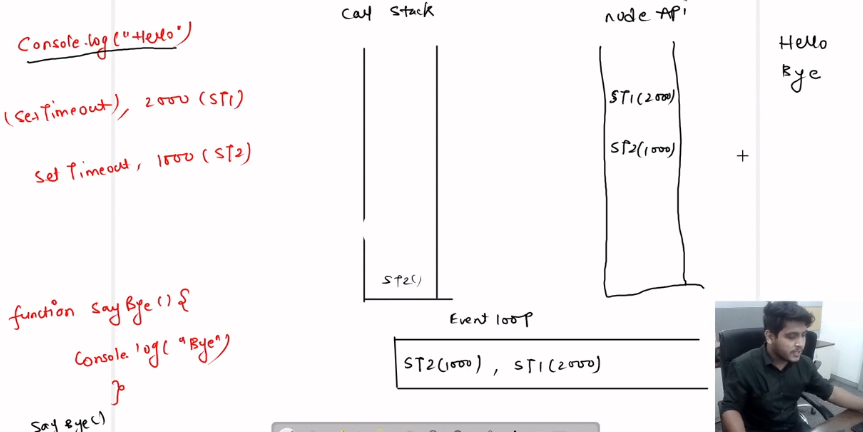 Console.log("Hello")
(SetTimeout), 2000 (ST1)
Set Timeout, 1000 (ST2)
function SayBye() {
Console.log( "Bye")
}
SayBye()
Call Stack
ST2()
node API
ST1(2000)
ST2(1000)
Event loop
ST2(1000) , ST1(2000)
Hello
Bye